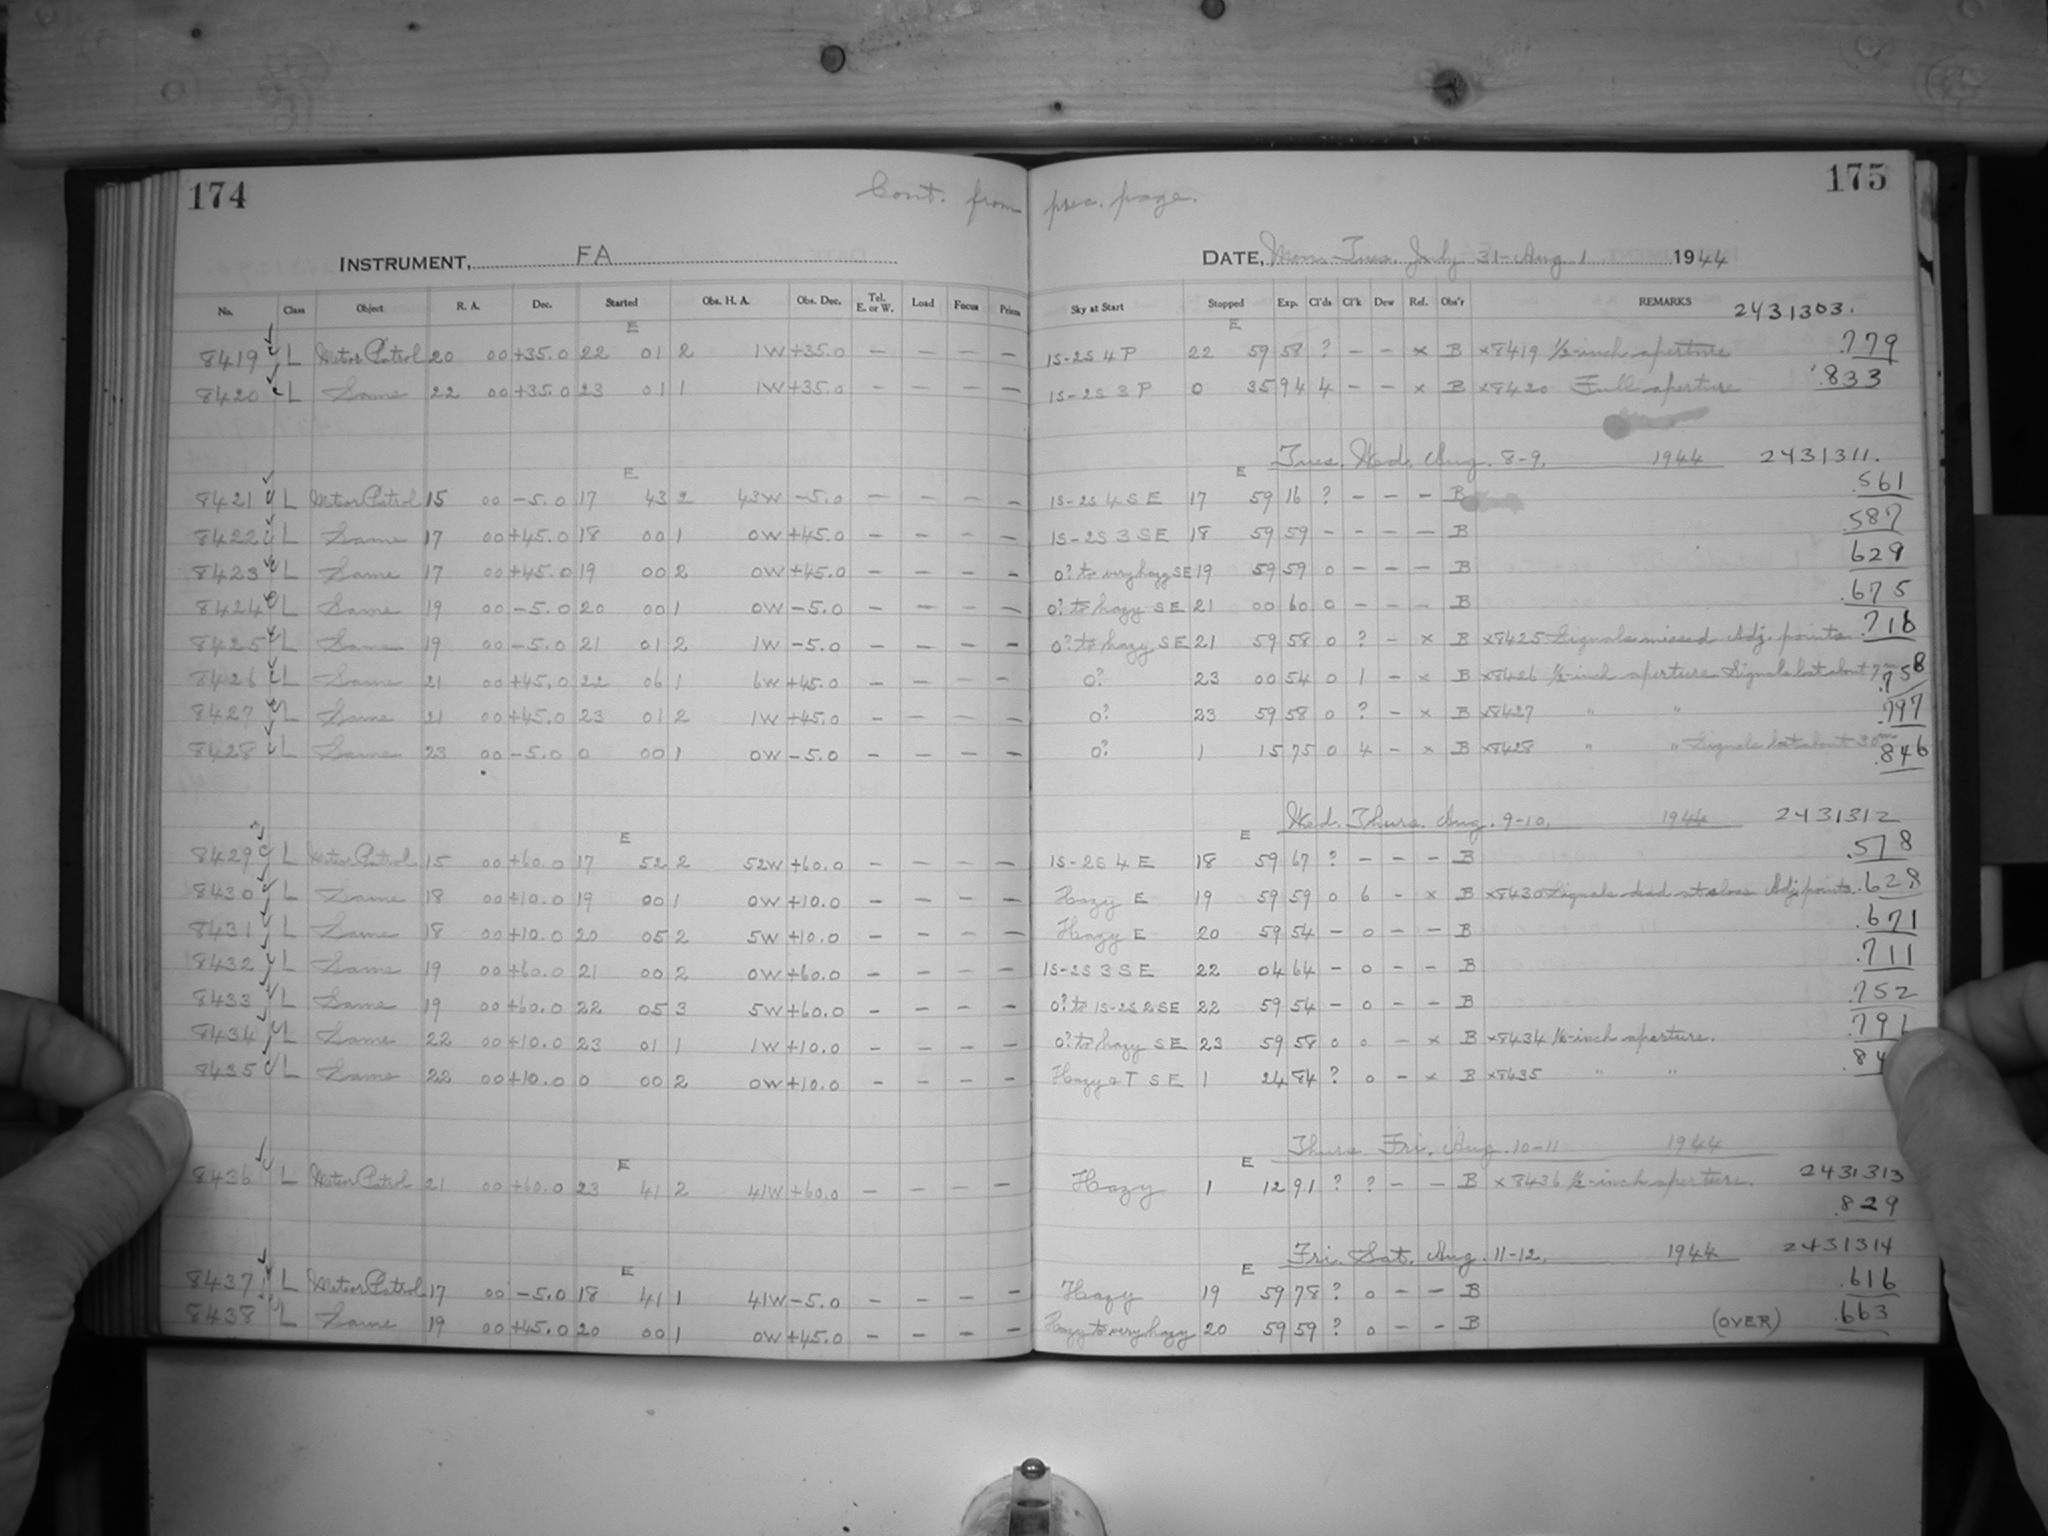 174
175
Cont. from prec. page.
INSTRUMENT, FA
DATE, Mon. Tues. July 31-Aug 1 1944
No. Class Object R. A. Dec. Started Obs. H. A. Obs. Dec. Tel. E. or W. Load Focus Prism Sky at Start Stopped Exp. Cl'ds Cl'k Dew Ref. Obs'r REMARKS 2431303.
E E
8419 L Meteor Patrol 20 00 +35.0 22 01 2 1W +35.0 - - - - 1S-2S 4 P 22 59 58 ? - - x B x8419 ½-inch aperture .779
8420 L Same 22 00 +35.0 23 01 1 1W +35.0 - - - - 1S-2S 3 P 0 35 94 4 - - x B x8420 Full aperture .833
Tues. Wed. Aug. 8-9, 1944 2431311.
E E
8421 L Meteor Patrol 15 00 -5.0 17 43 2 43W -5.0 - - - - 1S-2S 4 S E 17 59 16 ? - - - B .561
8422 L Same 17 00 +45.0 18 00 1 0W +45.0 - - - - 1S-2S 3 S E 18 59 59 - - - - B .587
8423 L Same 17 00 +45.0 19 00 2 0W +45.0 - - - - 0? to very hazy SE 19 59 59 0 - - - B 629
8424 L Same 19 00 -5.0 20 00 1 0W -5.0 - - - - 0? to hazy S E 21 00 60 0 - - - B .675
8425 L Same 19 00 -5.0 21 01 2 1W -5.0 - - - - 0? to hazy S E 21 59 58 0 ? - x B x8425 Signals missed Adj. points. .716
8426 L Same 21 00 +45.0 22 06 1 6W +45.0 - - - - 0? 23 00 54 0 1 - x B x8426 ½-inch aperture Signals lost about 7m .758
8427 L Same 21 00 +45.0 23 01 2 1W +45.0 - - - - 0? 23 59 58 0 ? - x B x8427 " " .797
8428 L Same 23 00 -5.0 0 00 1 0W -5.0 - - - - 0? 1 15 75 0 4 - x B x8428 " " Signals lost about 30m .846
Wed. Thurs. Aug. 9-10, 1944 2431312
E E
8429 L Meteor Patrol 15 00 +60.0 17 52 2 52W +60.0 - - - - 1S-2S 4 E 18 59 67 ? - - - B .578
8430 L Same 18 00 +10.0 19 00 1 0W +10.0 - - - - Hazy E 19 59 59 0 6 - x B x8430 Signals dead at close Adj. points. .628
8431 L Same 18 00 +10.0 20 05 2 5W +10.0 - - - - Hazy E 20 59 54 - 0 - - B .671
8432 L Same 19 00 +60.0 21 00 2 0W +60.0 - - - - 1S-2S 3 S E 22 04 64 - 0 - - B .711
8433 L Same 19 00 +60.0 22 05 3 5W +60.0 - - - - 0? to 1S-2S 2 SE 22 59 54 - 0 - - B .752
8434 L Same 22 00 +10.0 23 01 1 1W +10.0 - - - - 0? to hazy S E 23 59 58 0 0 - x B x8434 ½-inch aperture. .791
8435 L Same 22 00 +10.0 0 00 2 0W +10.0 - - - - Hazy & T S E 1 24 84 ? 0 - x B x8435 " " .84
Thurs. Fri. Aug. 10-11 1944
E E
8436 L Meteor Patrol 21 00 +60.0 23 41 2 41W +60.0 - - - - Hazy 1 12 91 ? ? - - B x8436 ½-inch aperture. 2431313
.829
Fri. Sat. Aug. 11-12, 1944 2431314
E E
8437 L Meteor Patrol 17 00 -5.0 18 41 1 41W -5.0 - - - - Hazy 19 59 78 ? 0 - - B .616
8438 L Same 19 00 +45.0 20 00 1 0W +45.0 - - - - Hazy to very hazy 20 59 59 ? 0 - - B (OVER) .663